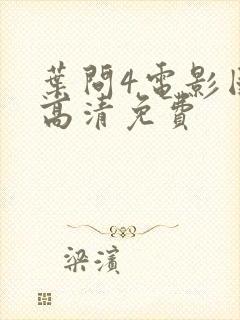 葉問4電影國
高清免費
梁濱